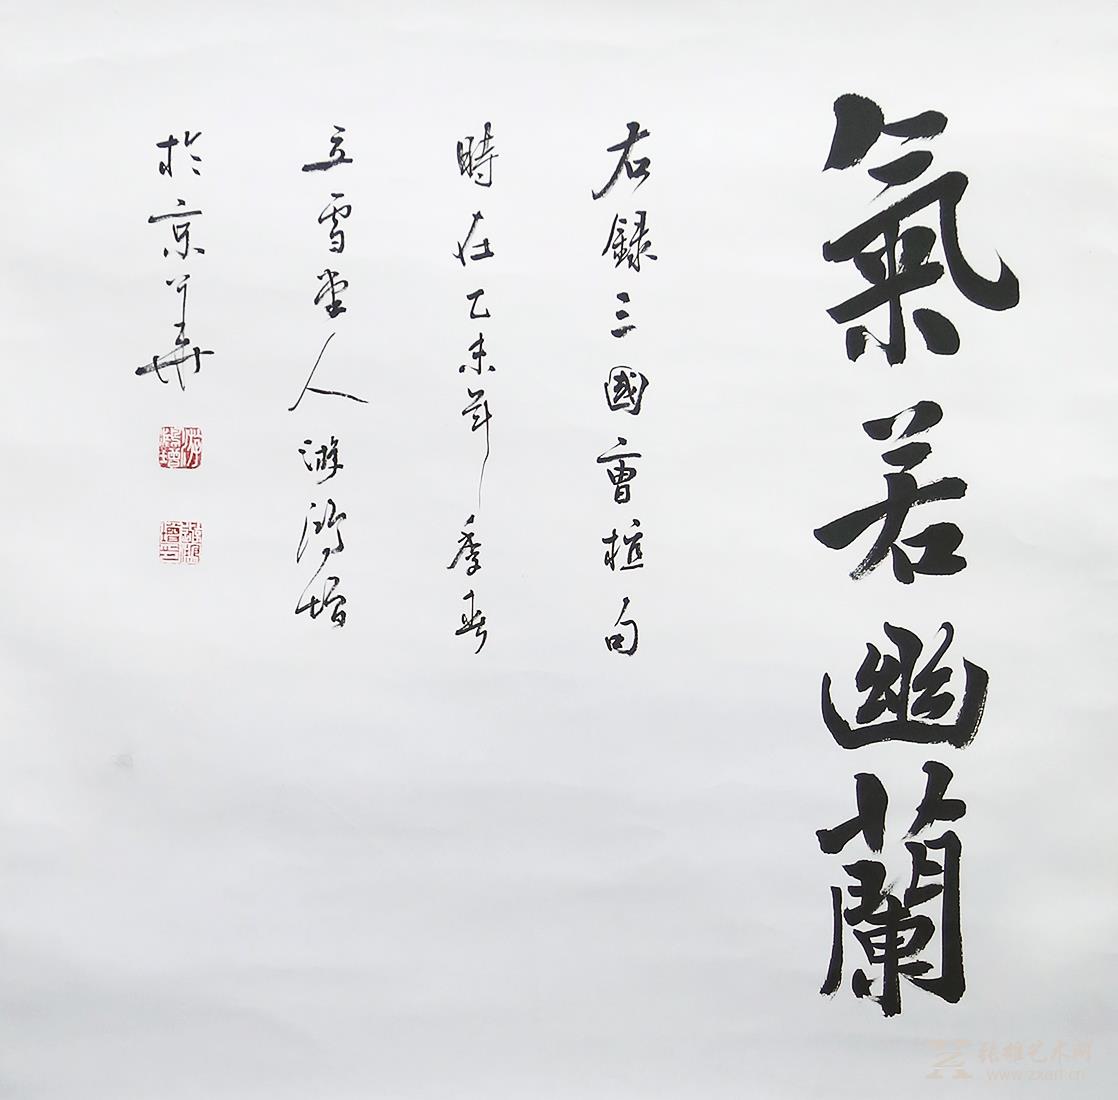 氣若幽蘭
右録三國曹植句
時在乙未年季春
立雪堂人游鴻增
於京華
张雄艺术网
www.zxart.cn